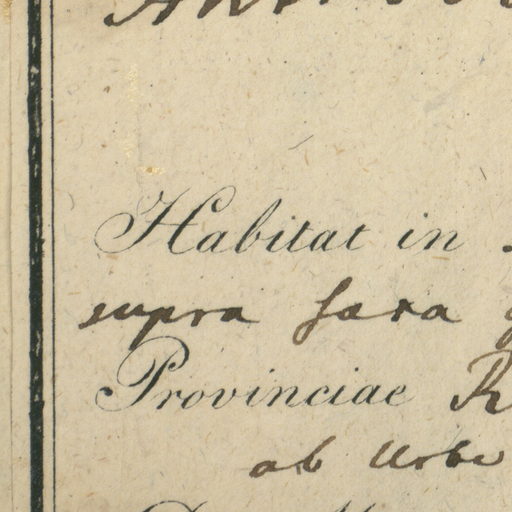 Habitat in
supra saxa
Provinciae
ab Urbe